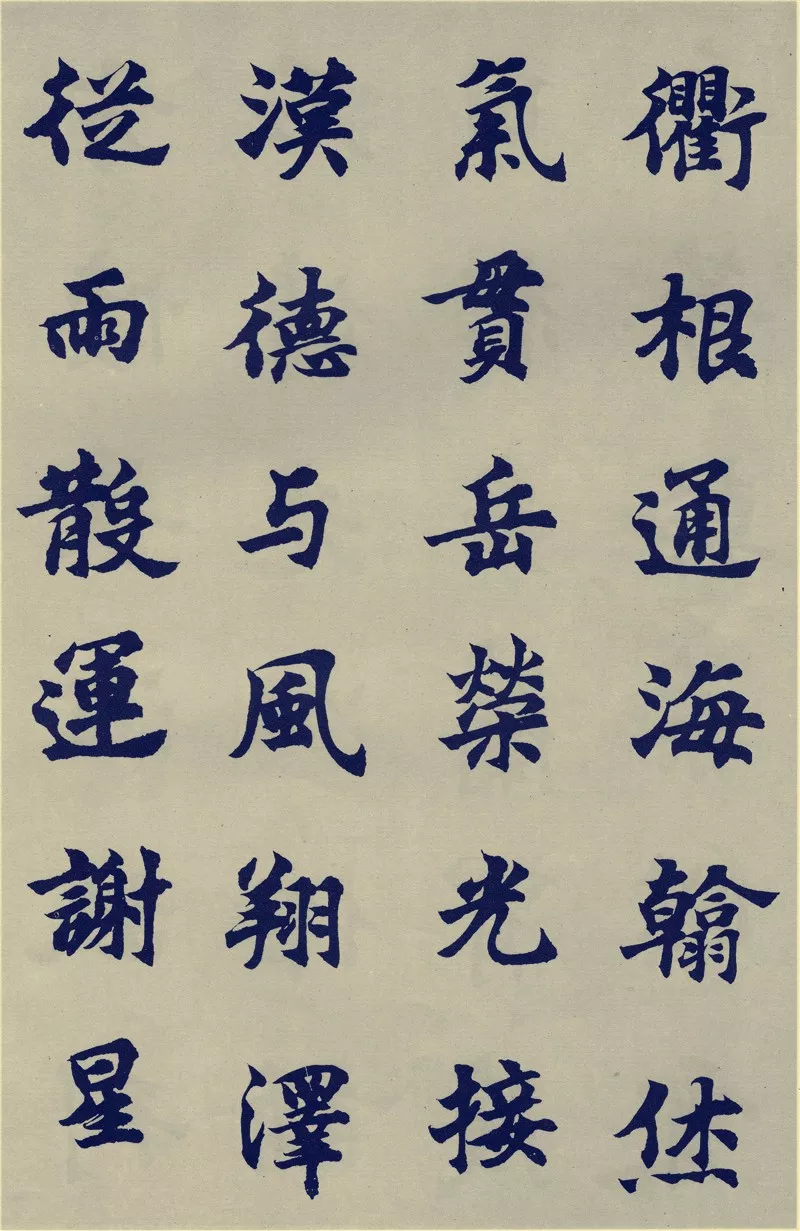 衢根通海翰烋
氣貫岳榮光接
漢德与風翔澤
従雨散運謝星